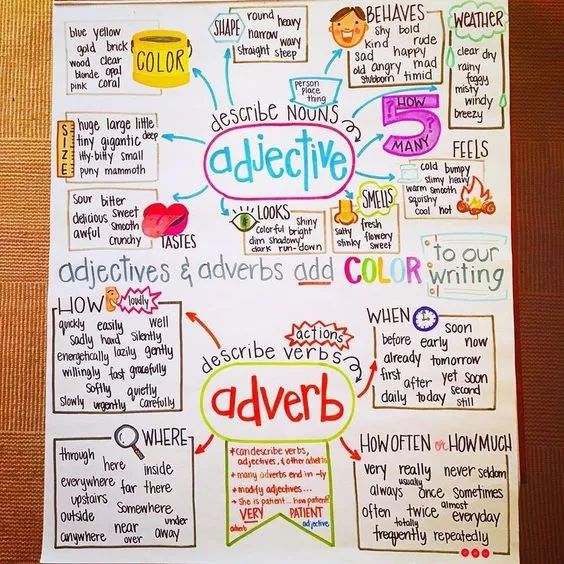 blue yellow
gold brick
wood clear
blonde opal
pink coral
COLOR
SHAPE
round heavy
narrow wavy
straight steep
BEHAVES
shy bold
kind rude
sad happy
old angry mad
stubborn timid
WEATHER
clear dry
rainy
foggy
misty
windy
breezy
person
place
thing
describe NOUNS
adjective
HOW
5
MANY
SIZE
huge large little
tiny gigantic deep
itty-bitty small
puny mammoth
FEELS
cold bumpy
slimy heavy
warm smooth
squishy
cool hot
sour bitter
delicious sweet
awful smooth
crunchy
TASTES
LOOKS
shiny
colorful bright
dim shadowy
dark run-down
SMELLS
salty fresh
flowery
stinky sweet
adjectives & adverbs add COLOR to our writing
HOW loudly
quickly easily well
sadly hard silently
energetically lazily gently
willingly fast gracefully
softly quietly
slowly urgently carefully
actions
describe verbs
adverb
WHEN
soon
before early now
already tomorrow
first after yet soon
daily today second
still
WHERE
through here inside
everywhere far there
upstairs somewhere
outside near under
anywhere over away
• can describe verbs,
adjectives, & other adverbs
• many adverbs end in -ly
• modify adjectives...
• She is patient... how patient?
VERY PATIENT
adverb adjective
HOW OFTEN or HOW MUCH
very really never seldom
usually
always once sometimes
often twice almost everyday
totally
frequently repeatedly